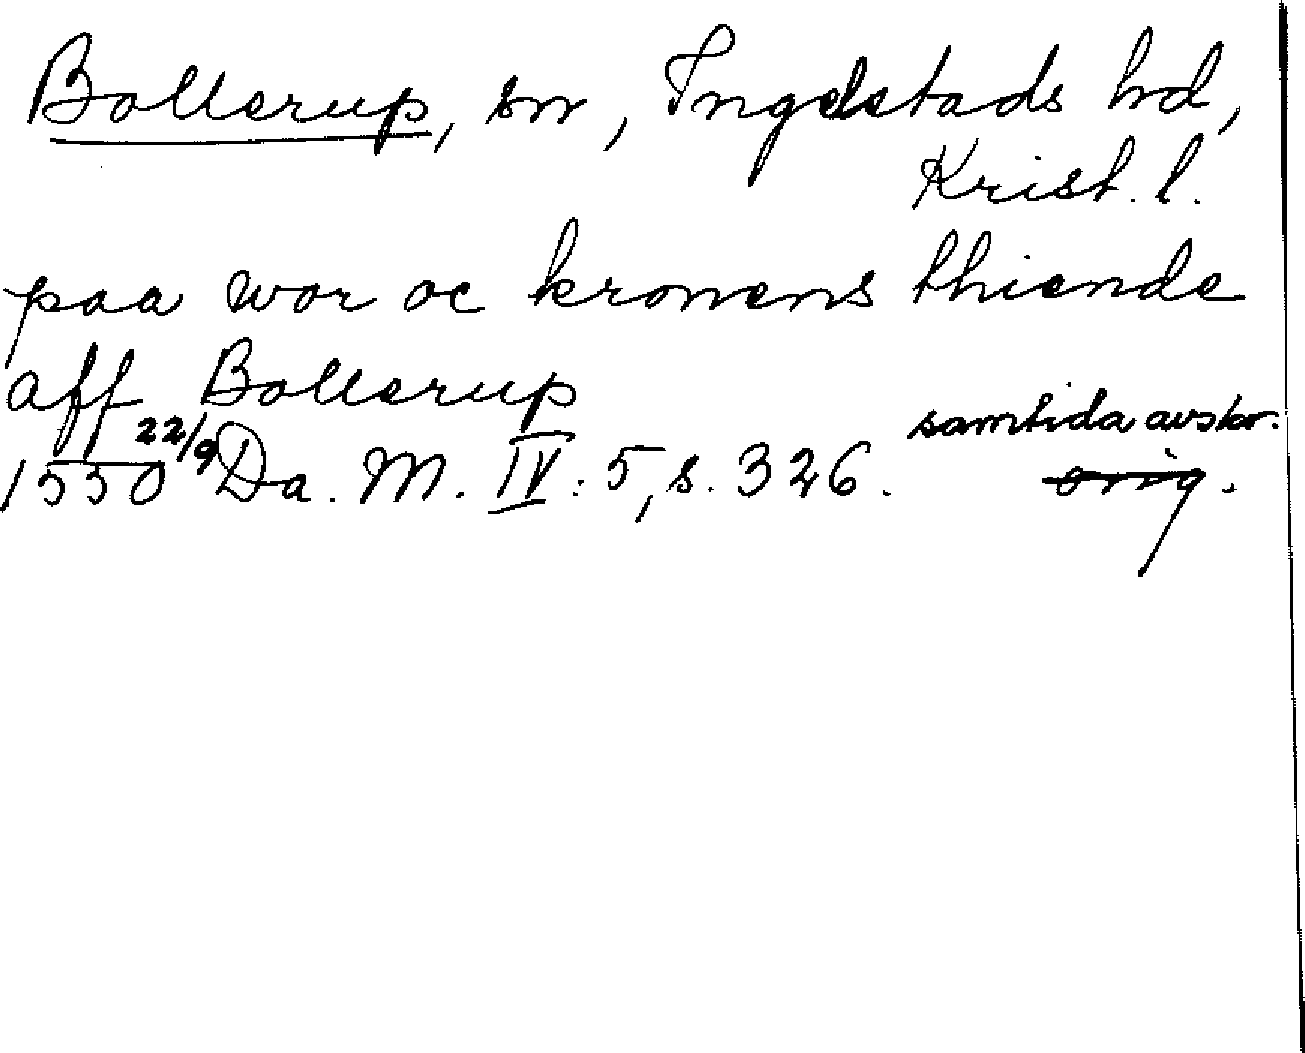 Bollerup, sn, Ingelstads hd,
Krist. l.
paa wor oc kronens thiende
aff Bollerup
samtida avskr.
1550 22/9 Da. M. IV: 5, s. 326. orig.